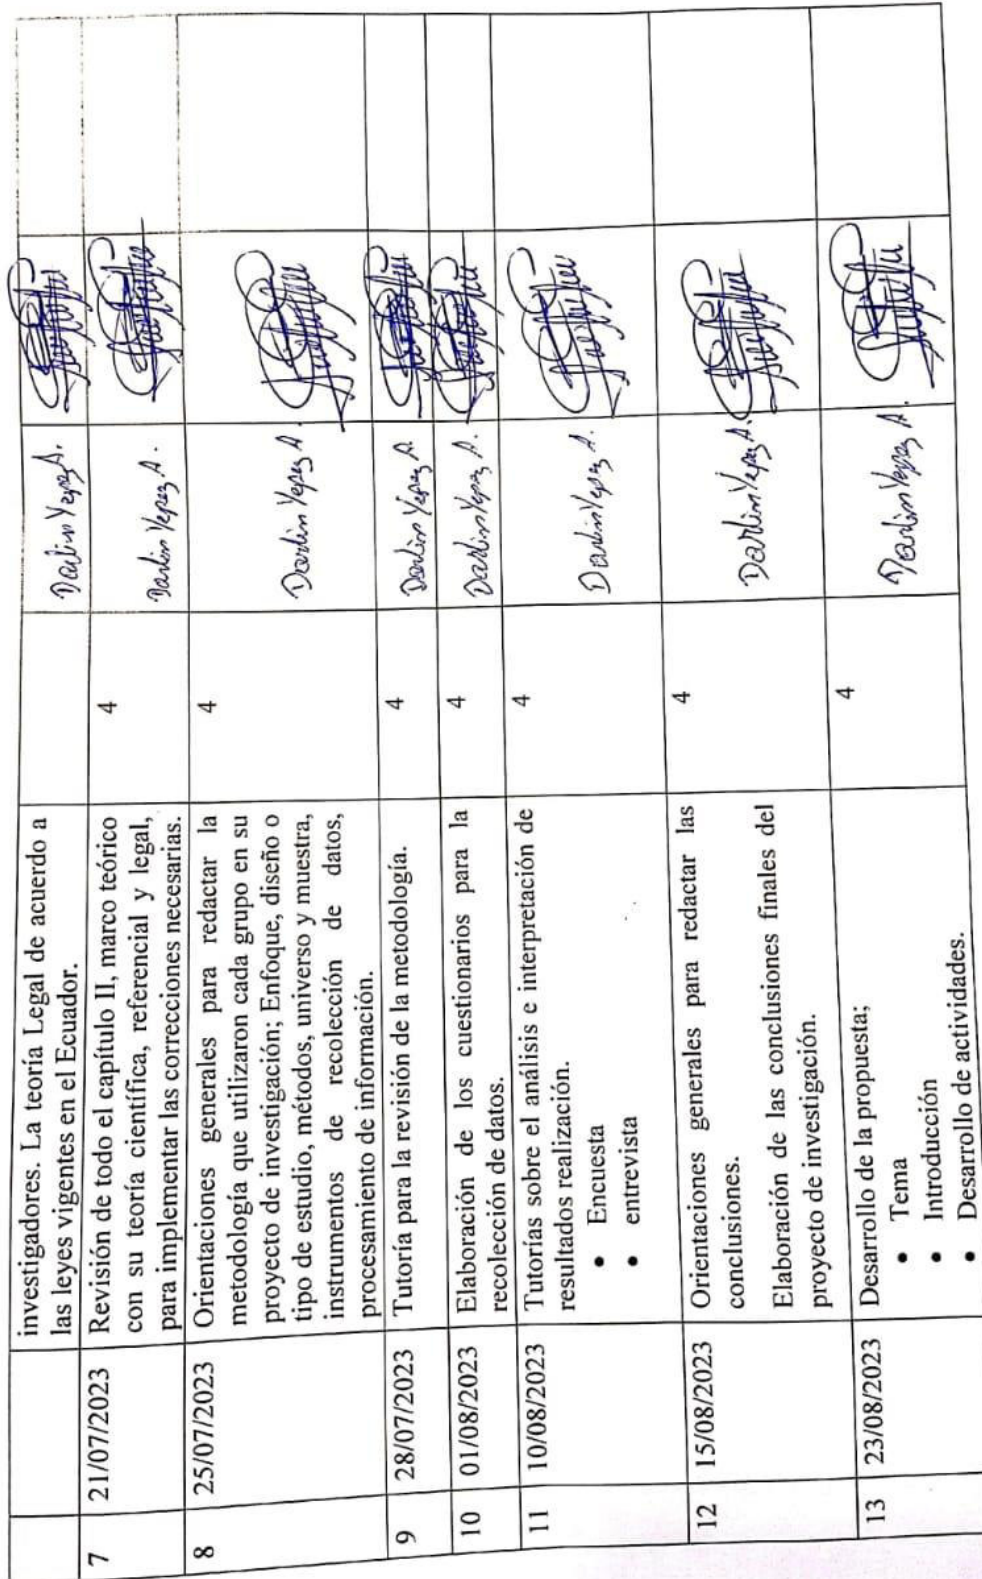 investigadores. La teoría Legal de acuerdo a
las leyes vigentes en el Ecuador.
Darlin Yepez A.
7
21/07/2023
Revisión de todo el capítulo II, marco teórico
con su teoría científica, referencial y legal,
para implementar las correcciones necesarias.
4
Darlin Yepez A.
8
25/07/2023
Orientaciones generales para redactar la
metodología que utilizaron cada grupo en su
proyecto de investigación; Enfoque, diseño o
tipo de estudio, métodos, universo y muestra,
instrumentos de recolección de datos,
procesamiento de información.
4
Darlin Yepez A.
9
28/07/2023
Tutoría para la revisión de la metodología.
4
Darlin Yepez A.
10
01/08/2023
Elaboración de los cuestionarios para la
recolección de datos.
4
Darlin Yepez A.
11
10/08/2023
Tutorías sobre el análisis e interpretación de
resultados realización.
• Encuesta
• entrevista
4
Darlin Yepez A.
12
15/08/2023
Orientaciones generales para redactar las
conclusiones.
Elaboración de las conclusiones finales del
proyecto de investigación.
4
Darlin Yepez A.
13
23/08/2023
Desarrollo de la propuesta;
• Tema
• Introducción
• Desarrollo de actividades.
4
Darlin Yepez A.